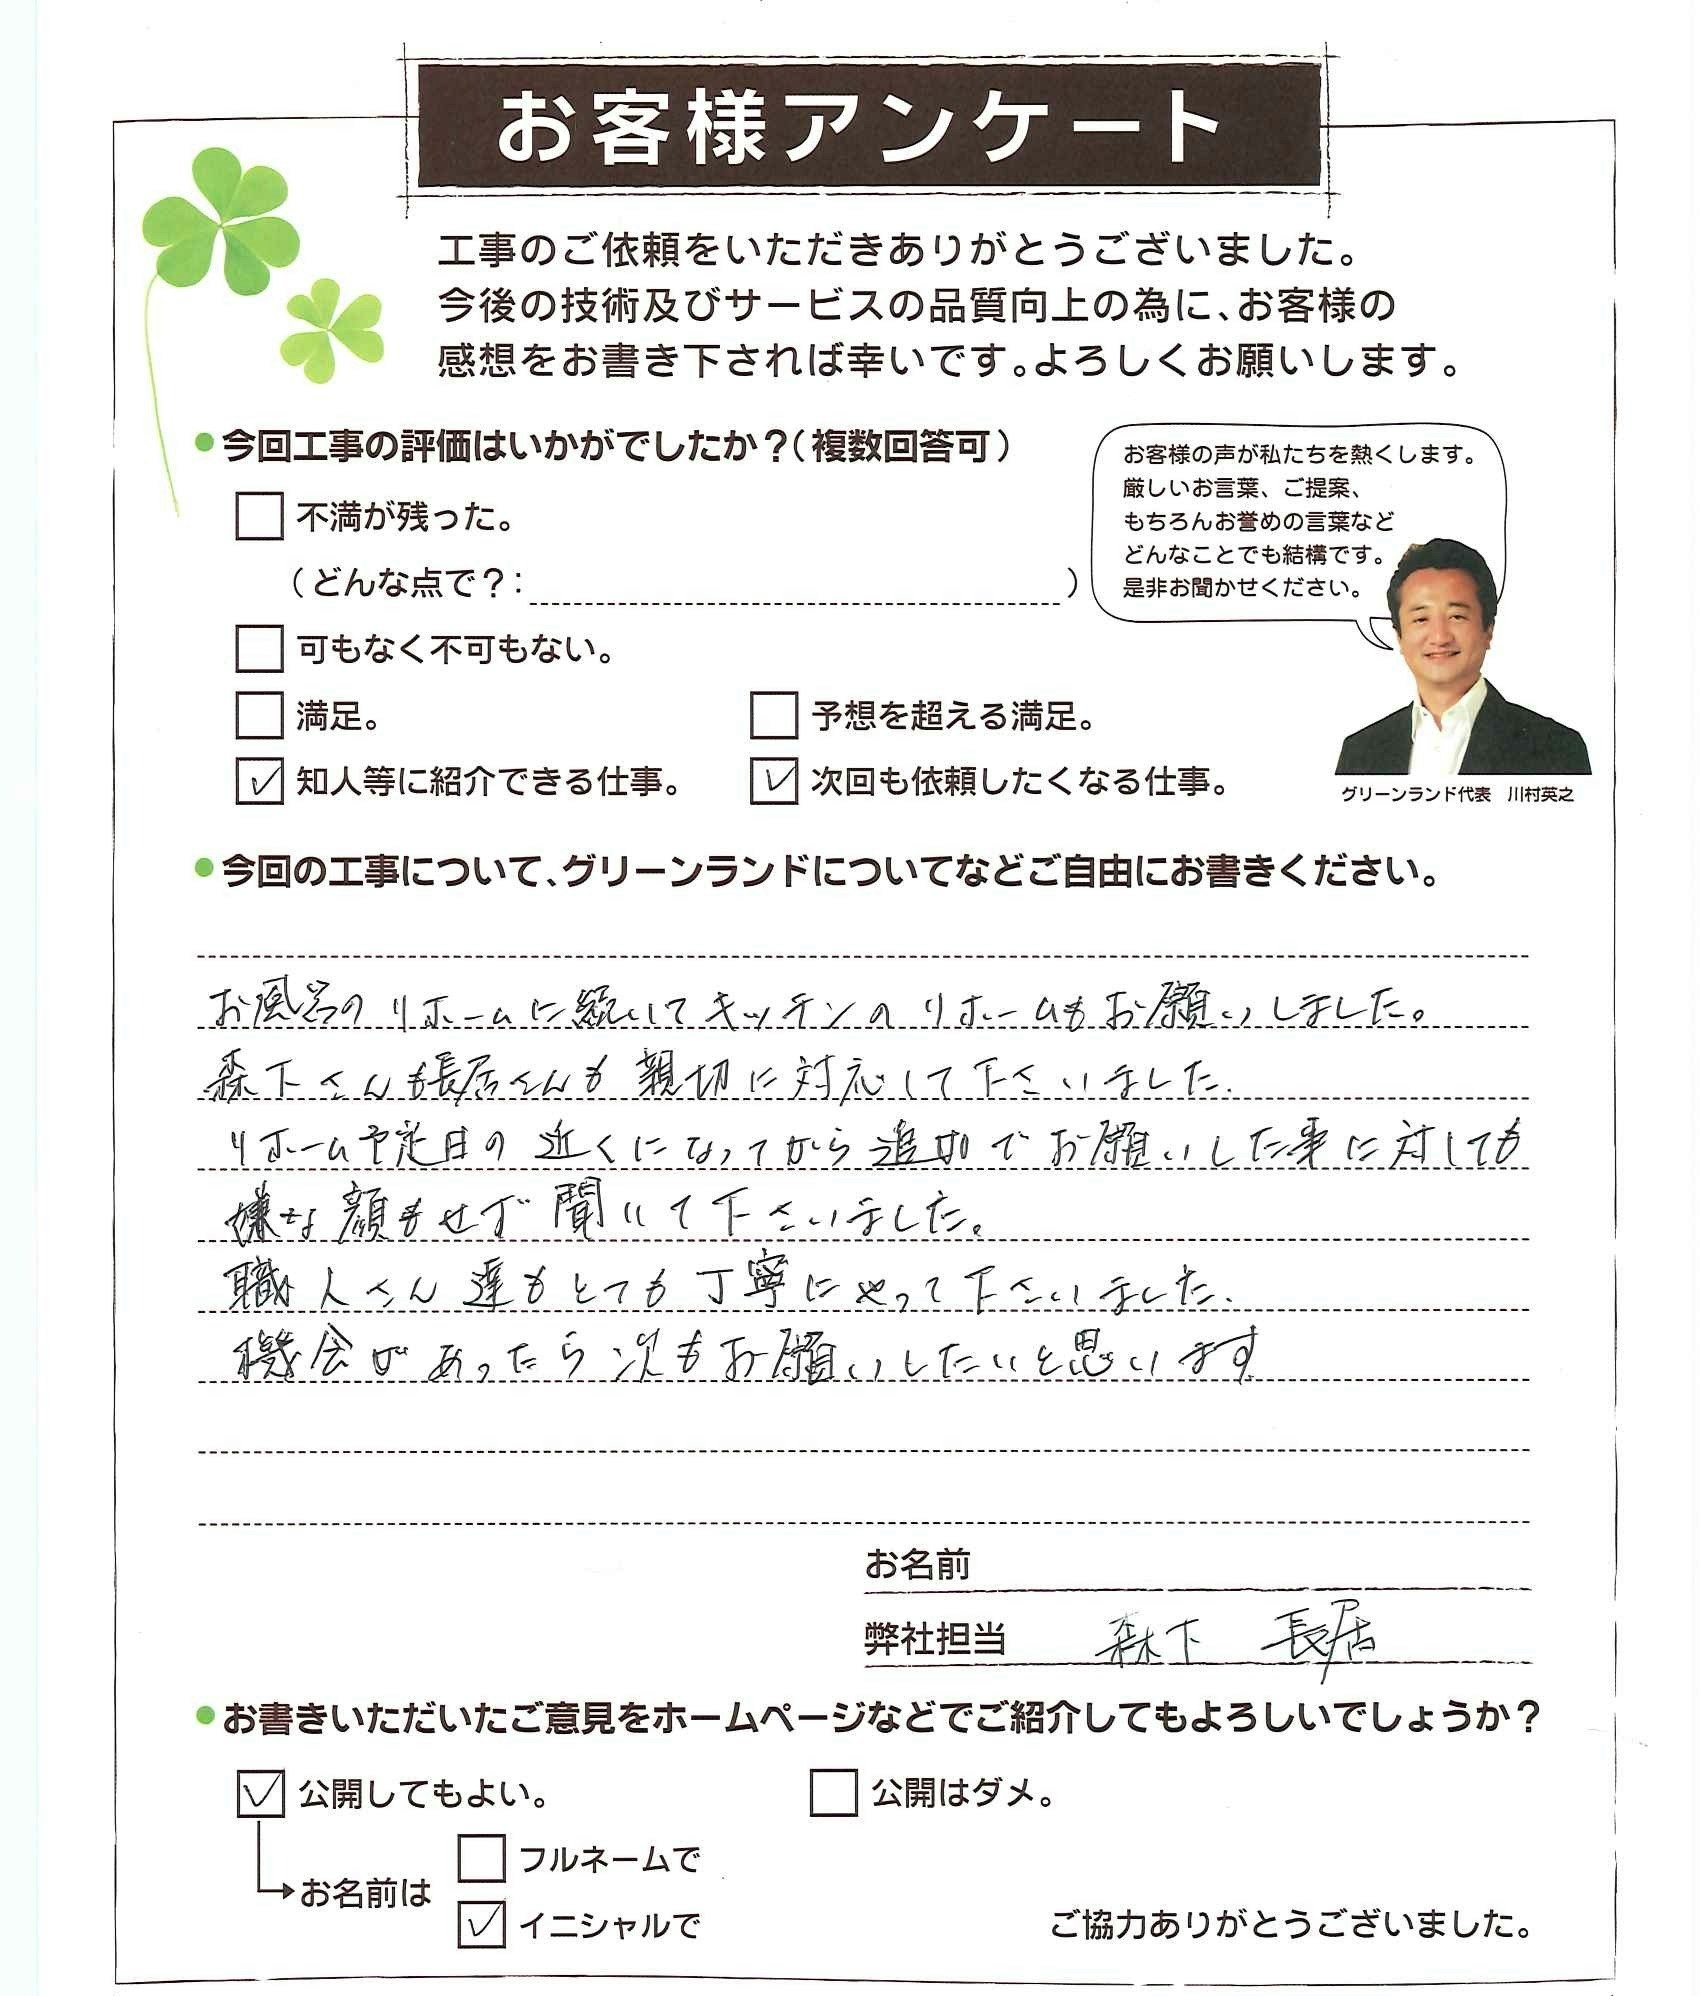 お客様アンケート
工事のご依頼をいただきありがとうございました。
今後の技術及びサービスの品質向上の為に、お客様の
感想をお書き下されば幸いです。よろしくお願いします。
●今回工事の評価はいかがでしたか？（複数回答可）
□不満が残った。
（どんな点で？：　　　）
□可もなく不可もない。
□満足。　□予想を超える満足。
☑知人等に紹介できる仕事。　☑次回も依頼したくなる仕事。
お客様の声が私たちを熱くします。
厳しいお言葉、ご提案、
もちろんお誉めの言葉など
どんなことでも結構です。
是非お聞かせください。
グリーンランド代表　川村英之
●今回の工事について、グリーンランドについてなどご自由にお書きください。
お風呂のリホームに続いてキッチンのリホームもお願いしました。
森下さんも長居さんも親切に対応して下さいました.
リホーム予定日の近くになってから追加でお願いした事に対しても
嫌な顔もせず聞いて下さいました。
職人さん達もとても丁寧にやって下さいました.
機会があったら次もお願いしたいと思います
お名前
弊社担当　森下　長居
●お書きいただいたご意見をホームページなどでご紹介してもよろしいでしょうか？
☑公開してもよい。　□公開はダメ。
お名前は
□フルネームで
☑イニシャルで
ご協力ありがとうございました。